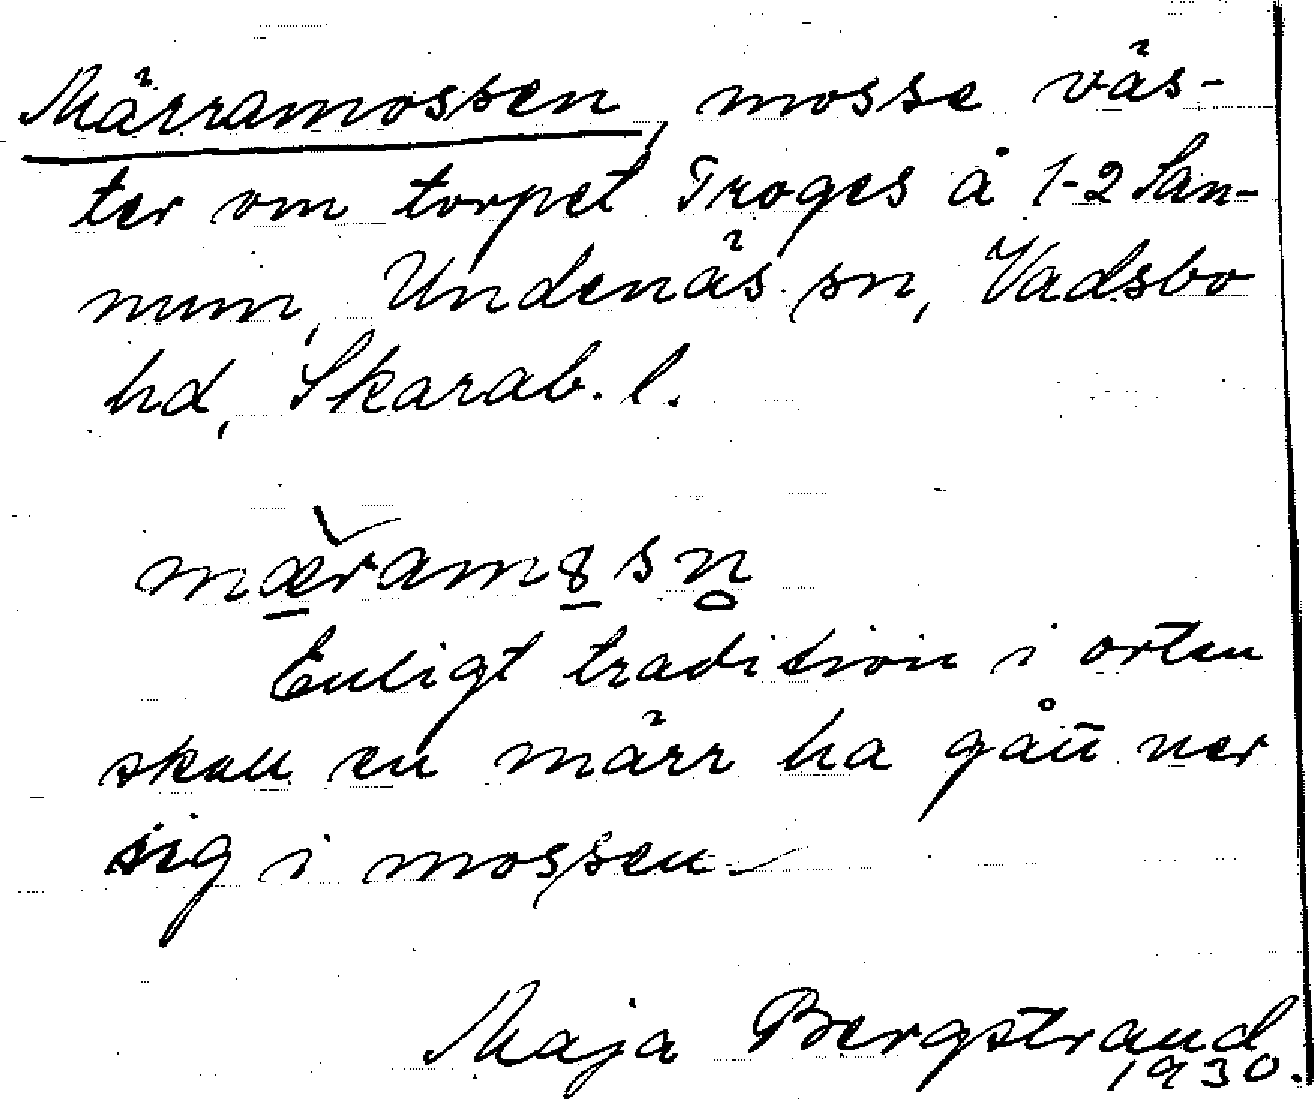 Märramossen, mosse väs-
ter om torpet Troges å 1-2 San-
num, Undenäs sn, Vadsbo
hd, Skarab. l.
mæ̀ram8sn̥
Enligt tradition i orten
skall en märr ha gått ner
sig i mossen.
Maja Bergstrand
1930.